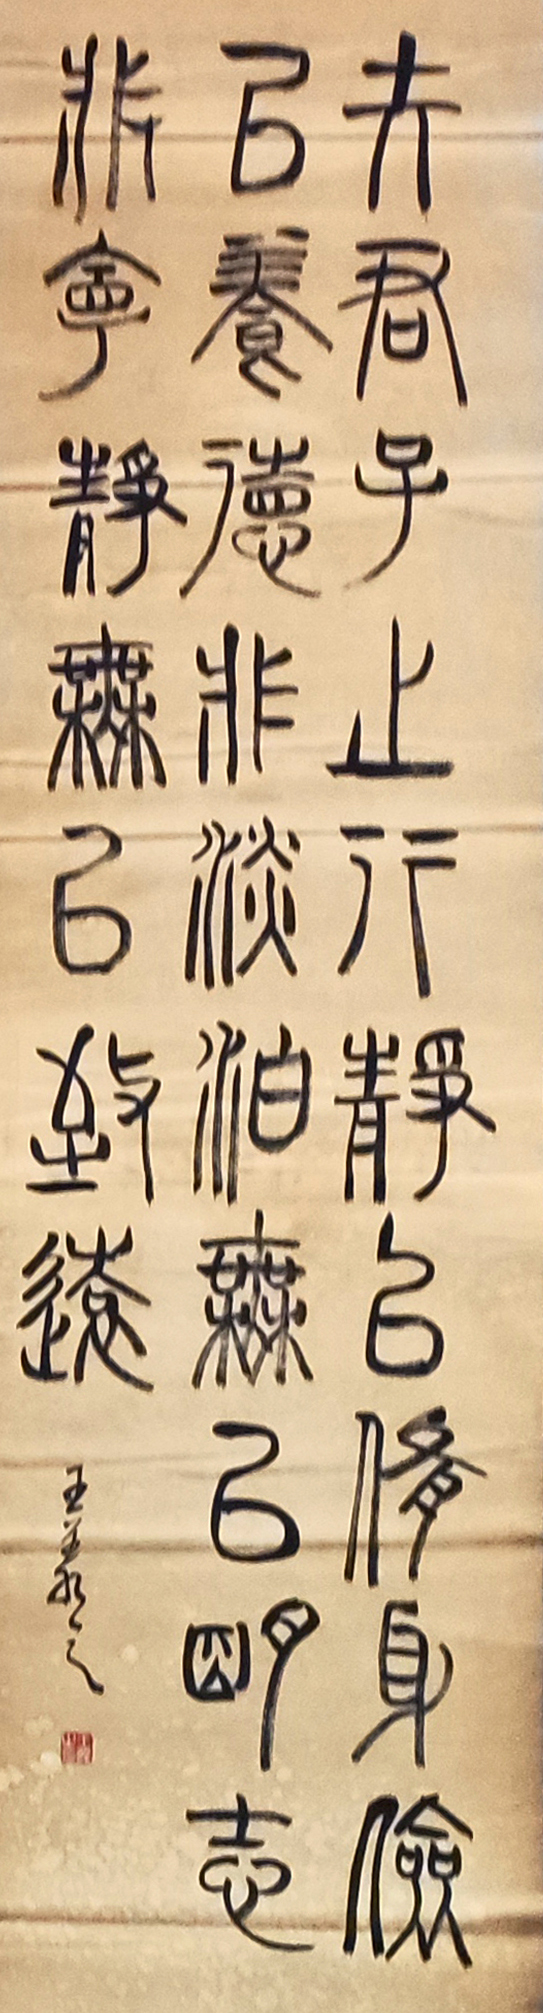 夫君子之行靜以修身儉
以養德非淡泊無以明志
非寧靜無以致遠
王羲之